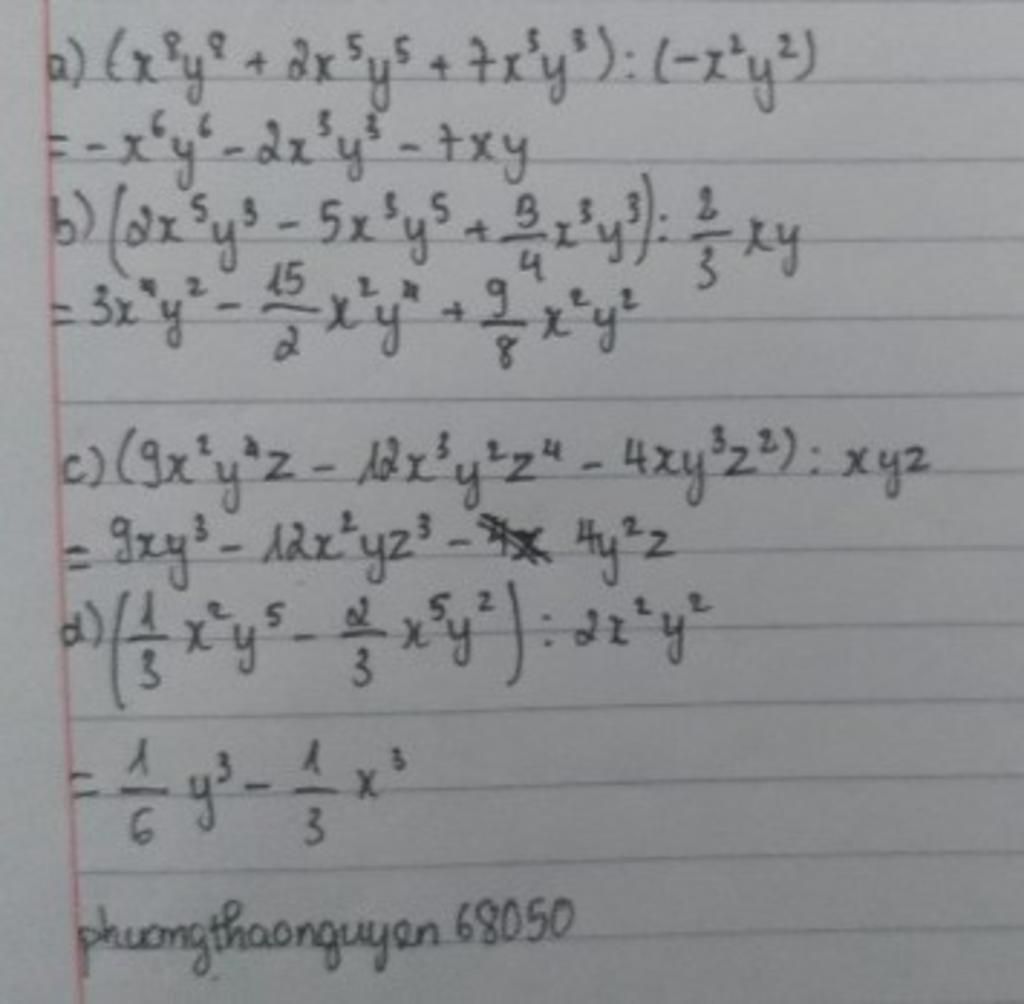 a) (x⁸y⁸ + 2x⁵y⁵ + 7x³y³) : (-x²y²)
= -x⁶y⁶ - 2x³y³ - 7xy
b) (2x⁵y³ - 5x³y⁵ + 3/4 x³y³) : 2/3 xy
= 3x⁴y² - 15/2 x²y⁴ + 9/8 x²y²
c) (9x²y⁴z - 12x³y²z⁴ - 4xy³z²) : xyz
= 9xy³ - 12x²yz³ - 4y²z
d) (1/3 x²y⁵ - 2/3 x⁵y²) : 2x²y²
= 1/6 y³ - 1/3 x³
phuongthaonguyen 68050